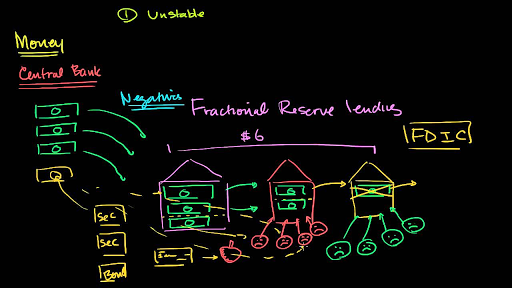 ① Unstable
Money
Central Bank
Negatives
Fractional Reserve lending
$6
FDIC
sec
sec
Bond